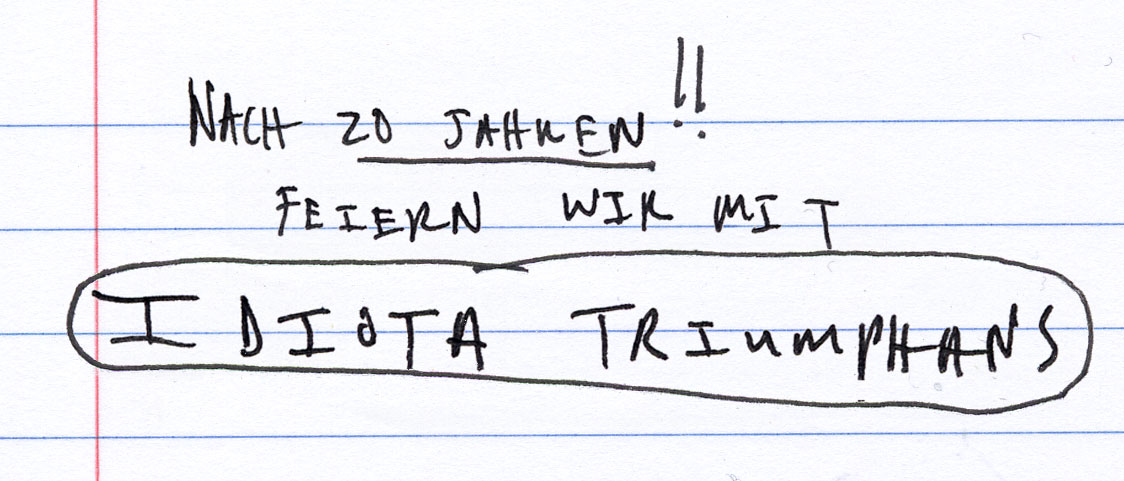 NACH 20 JAHREN!!
FEIERN WIR MIT
IDIOTA TRIUMPHANS